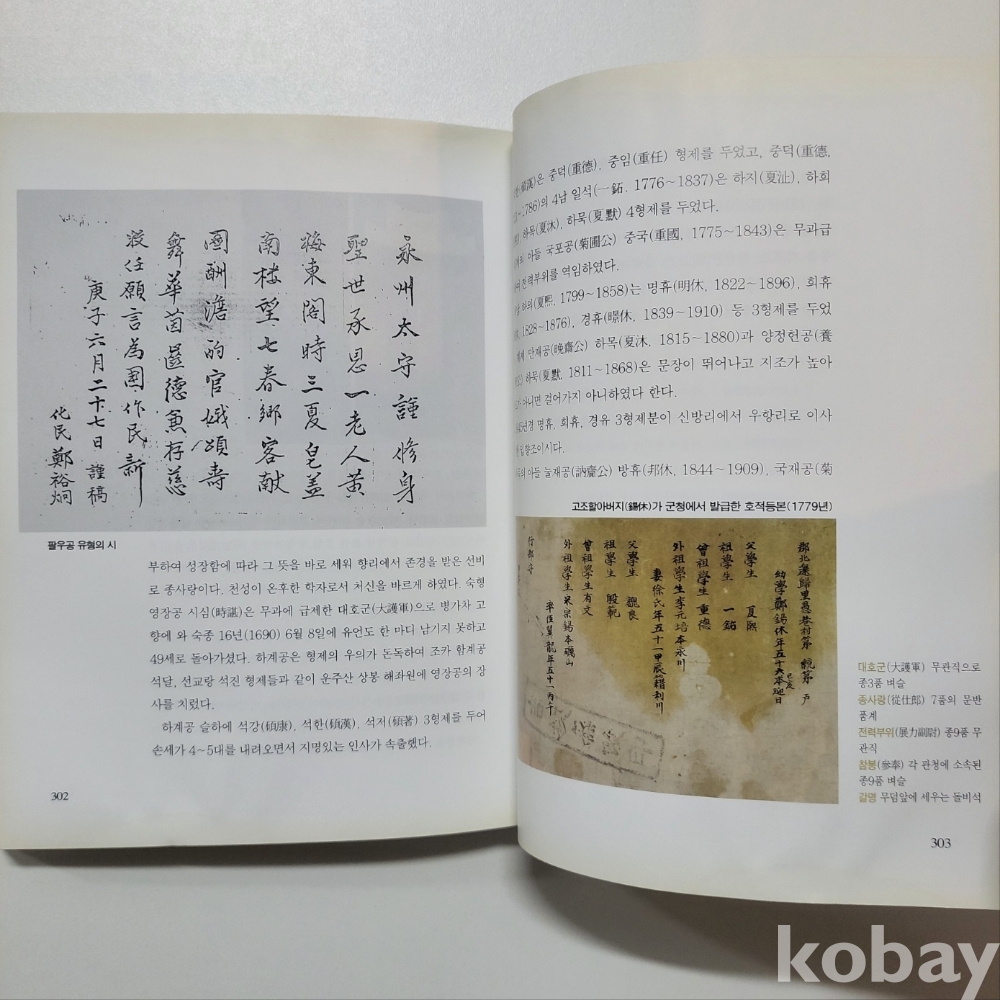 永州太守謹修身
聖世承恩一老人黃
梅東閣時三夏皂盖
南楼望七春鄉客献
圖酬澹的官娥頌壽
舞華茵匿德兼存慈
投任願言為國作民新
庚子六月二十七日 謹稿
化民鄭裕炯
팔우공 유형의 시
부하여 성장함에 따라 그 뜻을 바로 세워 향리에서 존경을 받은 선비
로 종사랑이다. 천성이 온후한 학자로서 처신을 바르게 하였다. 숙형
영장공 시심(時諶)은 무과에 급제한 대호군(大護軍)으로 병가차 고
향에 와 숙종 16년(1690) 6월 8일에 유언도 한 마디 남기지 못하고
49세로 돌아가셨다. 하계공은 형제의 우의가 돈독하여 조카 함계공
석달, 선교랑 석진 형제들과 같이 운주산 상봉 해좌원에 영장공의 장
사를 치렀다.
하계공 슬하에 석강(碩康), 석한(碩漢), 석저(碩著) 3형제를 두어
손세가 4~5대를 내려오면서 지명있는 인사가 속출했다.
302
은 중덕(重德), 중임(重任) 형제를 두었고, 중덕(重德,
1786)의 4남 일석(一鉐, 1776~1837)은 하지(夏沚), 하회
하유(夏沐), 하묵(夏默) 4형제를 두었다.
아들 국포공(菊圃公) 중국(重國, 1775~1843)은 무과급
전력부위를 역임하였다.
하희(夏熙, 1799~1858)는 명휴(明休, 1822~1896), 희휴
1828~1876), 경휴(暻休, 1839~1910) 등 3형제를 두었
만재공(晚齋公) 하목(夏沐, 1815~1880)과 양정헌공(養
하묵(夏默, 1811~1868)은 문장이 뛰어나고 지조가 높아
아니면 걸어가지 아니하였다 한다.
명휴, 희휴, 경유 3형제분이 신방리에서 우항리로 이사
향조이시다.
아들 눌재공(訥齋公) 방휴(邦休, 1844~1909), 국재공(菊
고조할아버지(錫休)가 군청에서 발급한 호적등본(1779년)
郡北邊歸里愚巷村第 統第 戶
幼學鄭錫休年五十六本延日
父學生 夏熙
祖學生 一鉐
曾祖學生 重德
外祖學生李元培本永川
妻徐氏年五十一甲辰籍利川
父學生
祖學生 殷範
曾祖學生有文
外祖學生
대호군(大護軍) 무관직으로
종3품 벼슬
종사랑(從仕郞) 7품의 문반
품계
전력부위(展力副尉) 종9품 무
관직
참봉(參奉) 각 관청에 소속된
종9품 벼슬
갈명 무덤앞에 세우는 돌비석
303
kobay